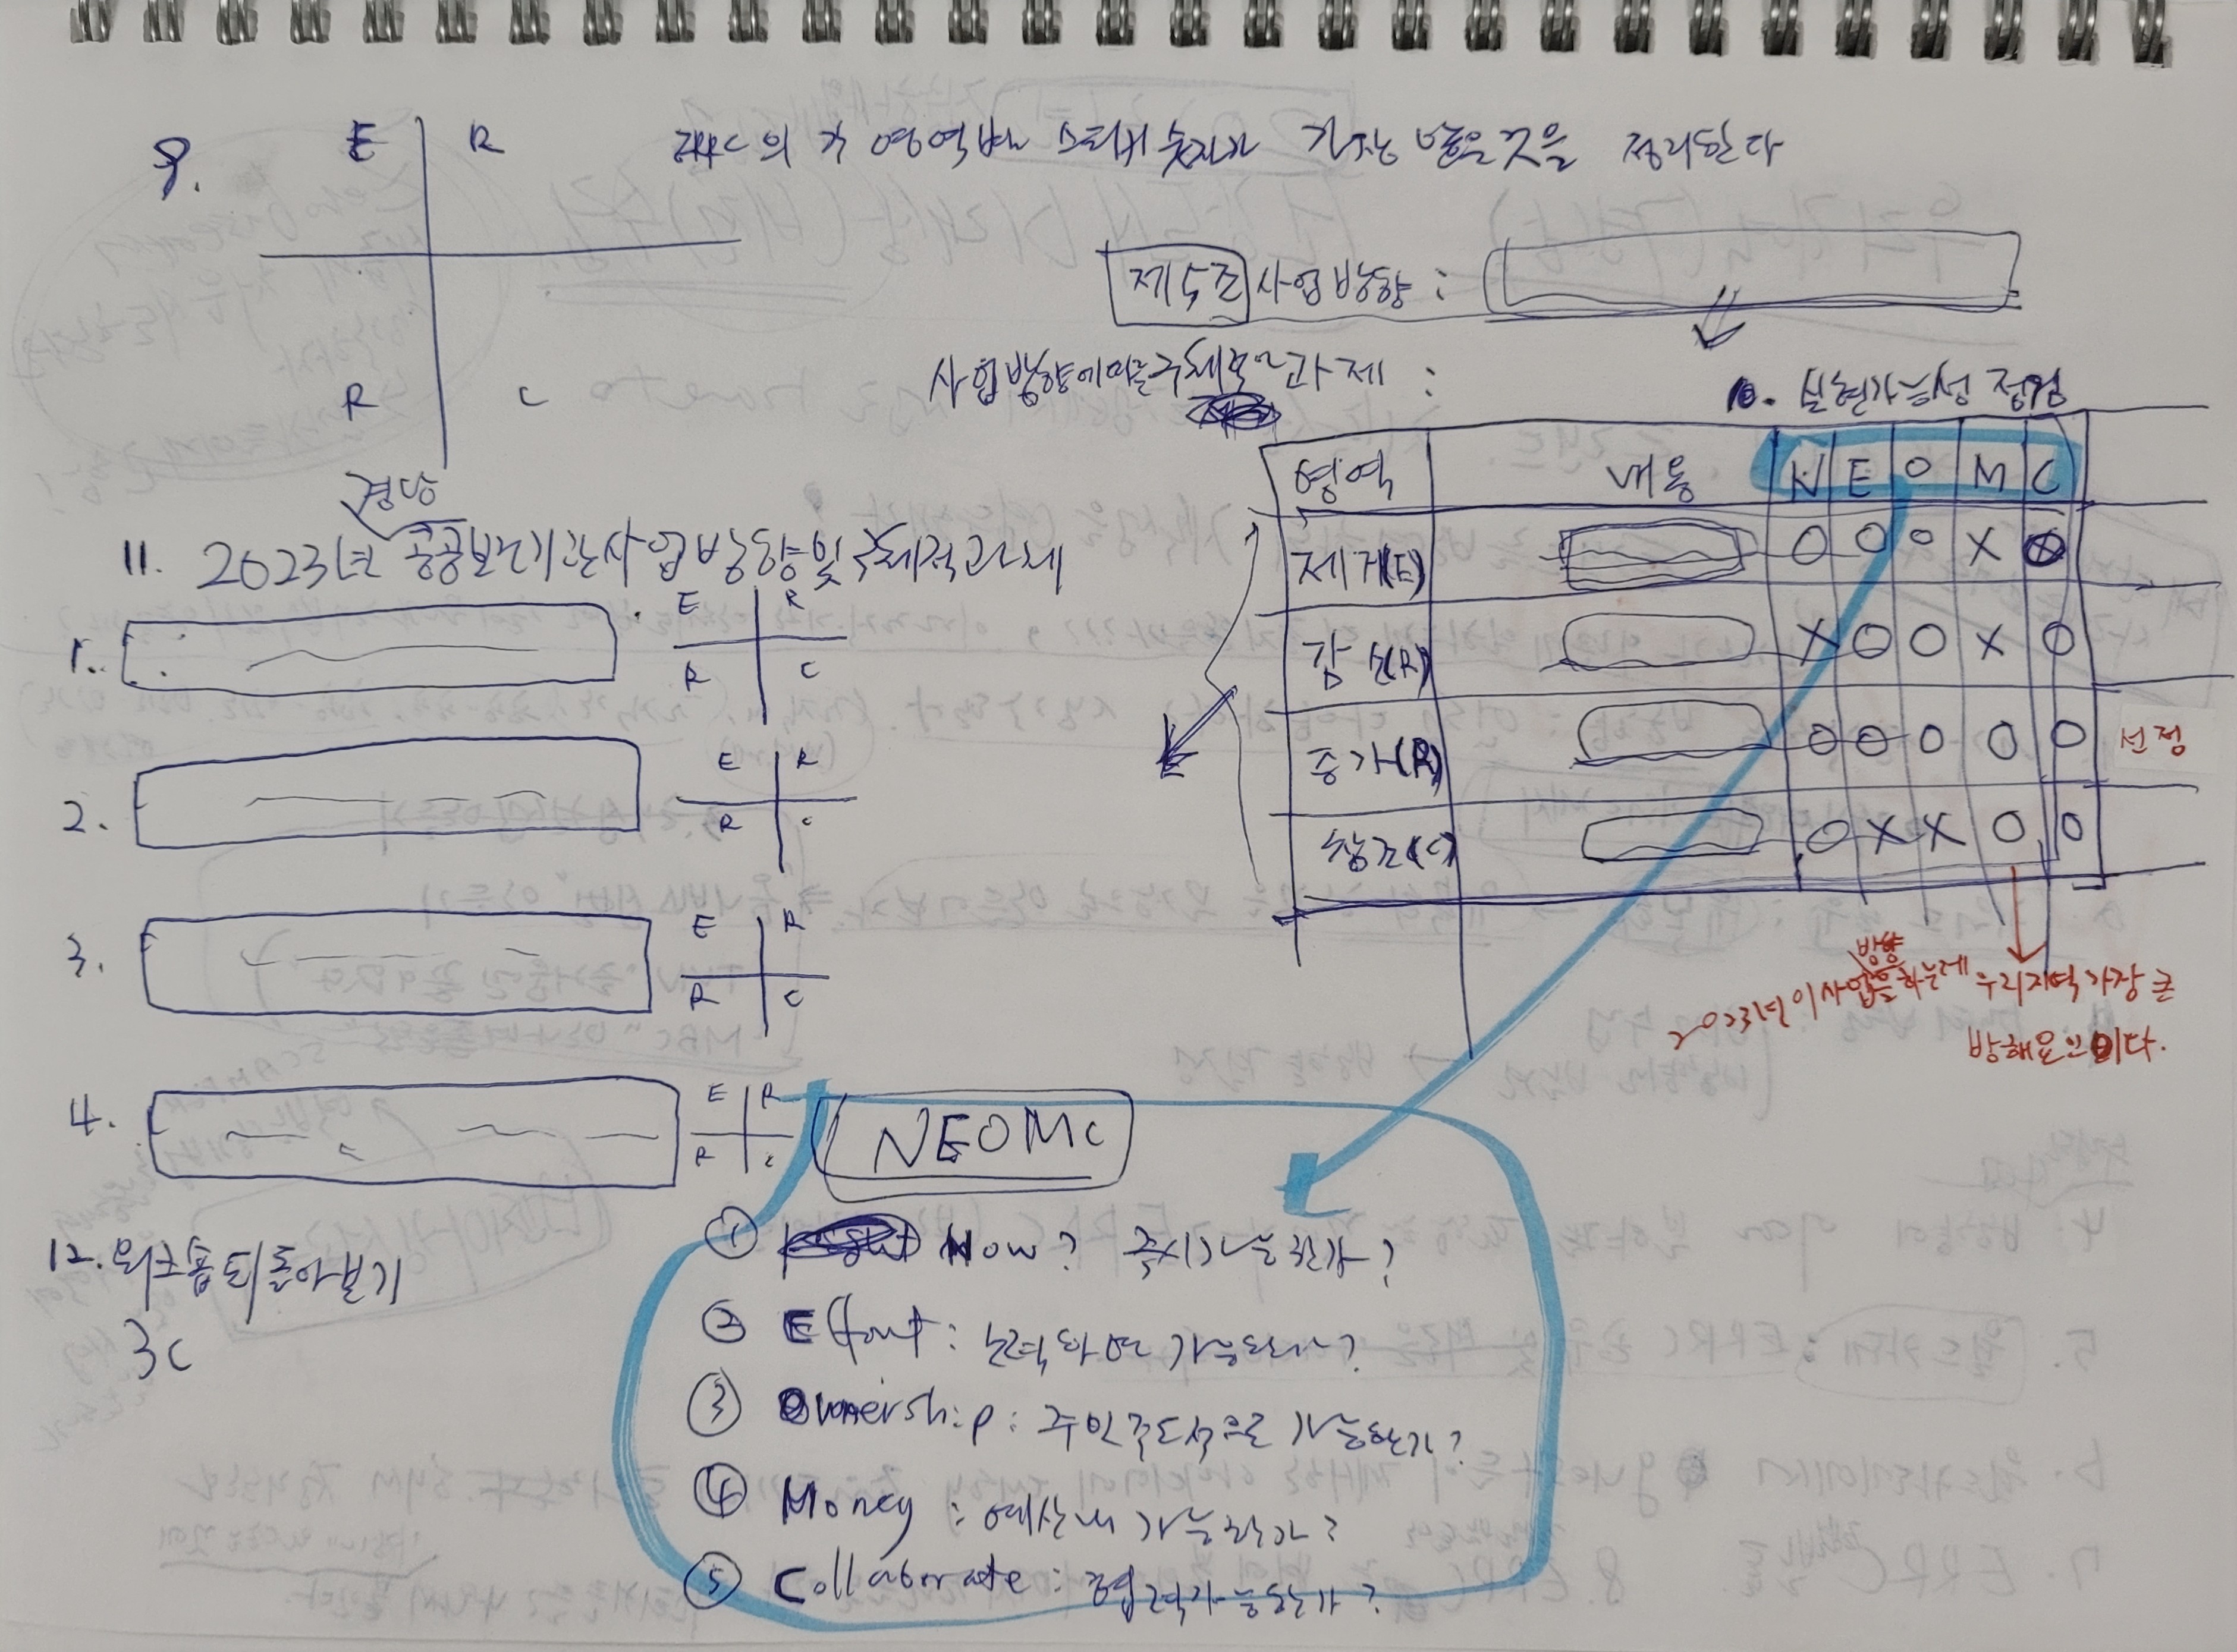 9. E R
R C
ERRC의 각 영역별 스티커 숫자가 가장 많은것을 정리한다
제5조 사업방향 :
사업방향에따른구체적인과제 :
10. 실현가능성 점검
영역 내용 N E O M C
제거(E) O O O X
감소(R) X O O X O
증가(R) O O O O O 선정
창조(C) O X X O O
방향
2023년 이사업을하는데 우리지역 가장 큰
방해요인이다.
11. 2023년 공공보건기관사업방향및구체적과제
1. E R
R C
2. E R
R C
3. E R
R C
4. E R
R C
NEOMC
① Now? 즉시가능한가?
② Effort : 노력하면 가능한가?
③ Ownership : 주인주도적으로 가능한가?
④ Money : 예산내 가능한가?
⑤ Collaborate : 협력가능한가?
12. 워크숍 되돌아보기
3C